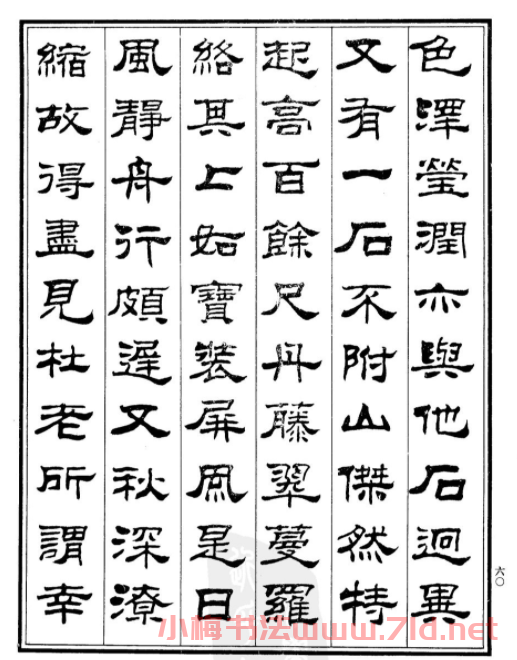 色澤瑩潤亦與他石迥異
又有一石不附山傑然特
起高百餘尺丹藤翠蔓羅
絡其上如寶裝屏風是日
風靜舟行頗遲又秋深潦
縮故得盡見杜老所謂幸
六〇
小梅书法www.7ld.net